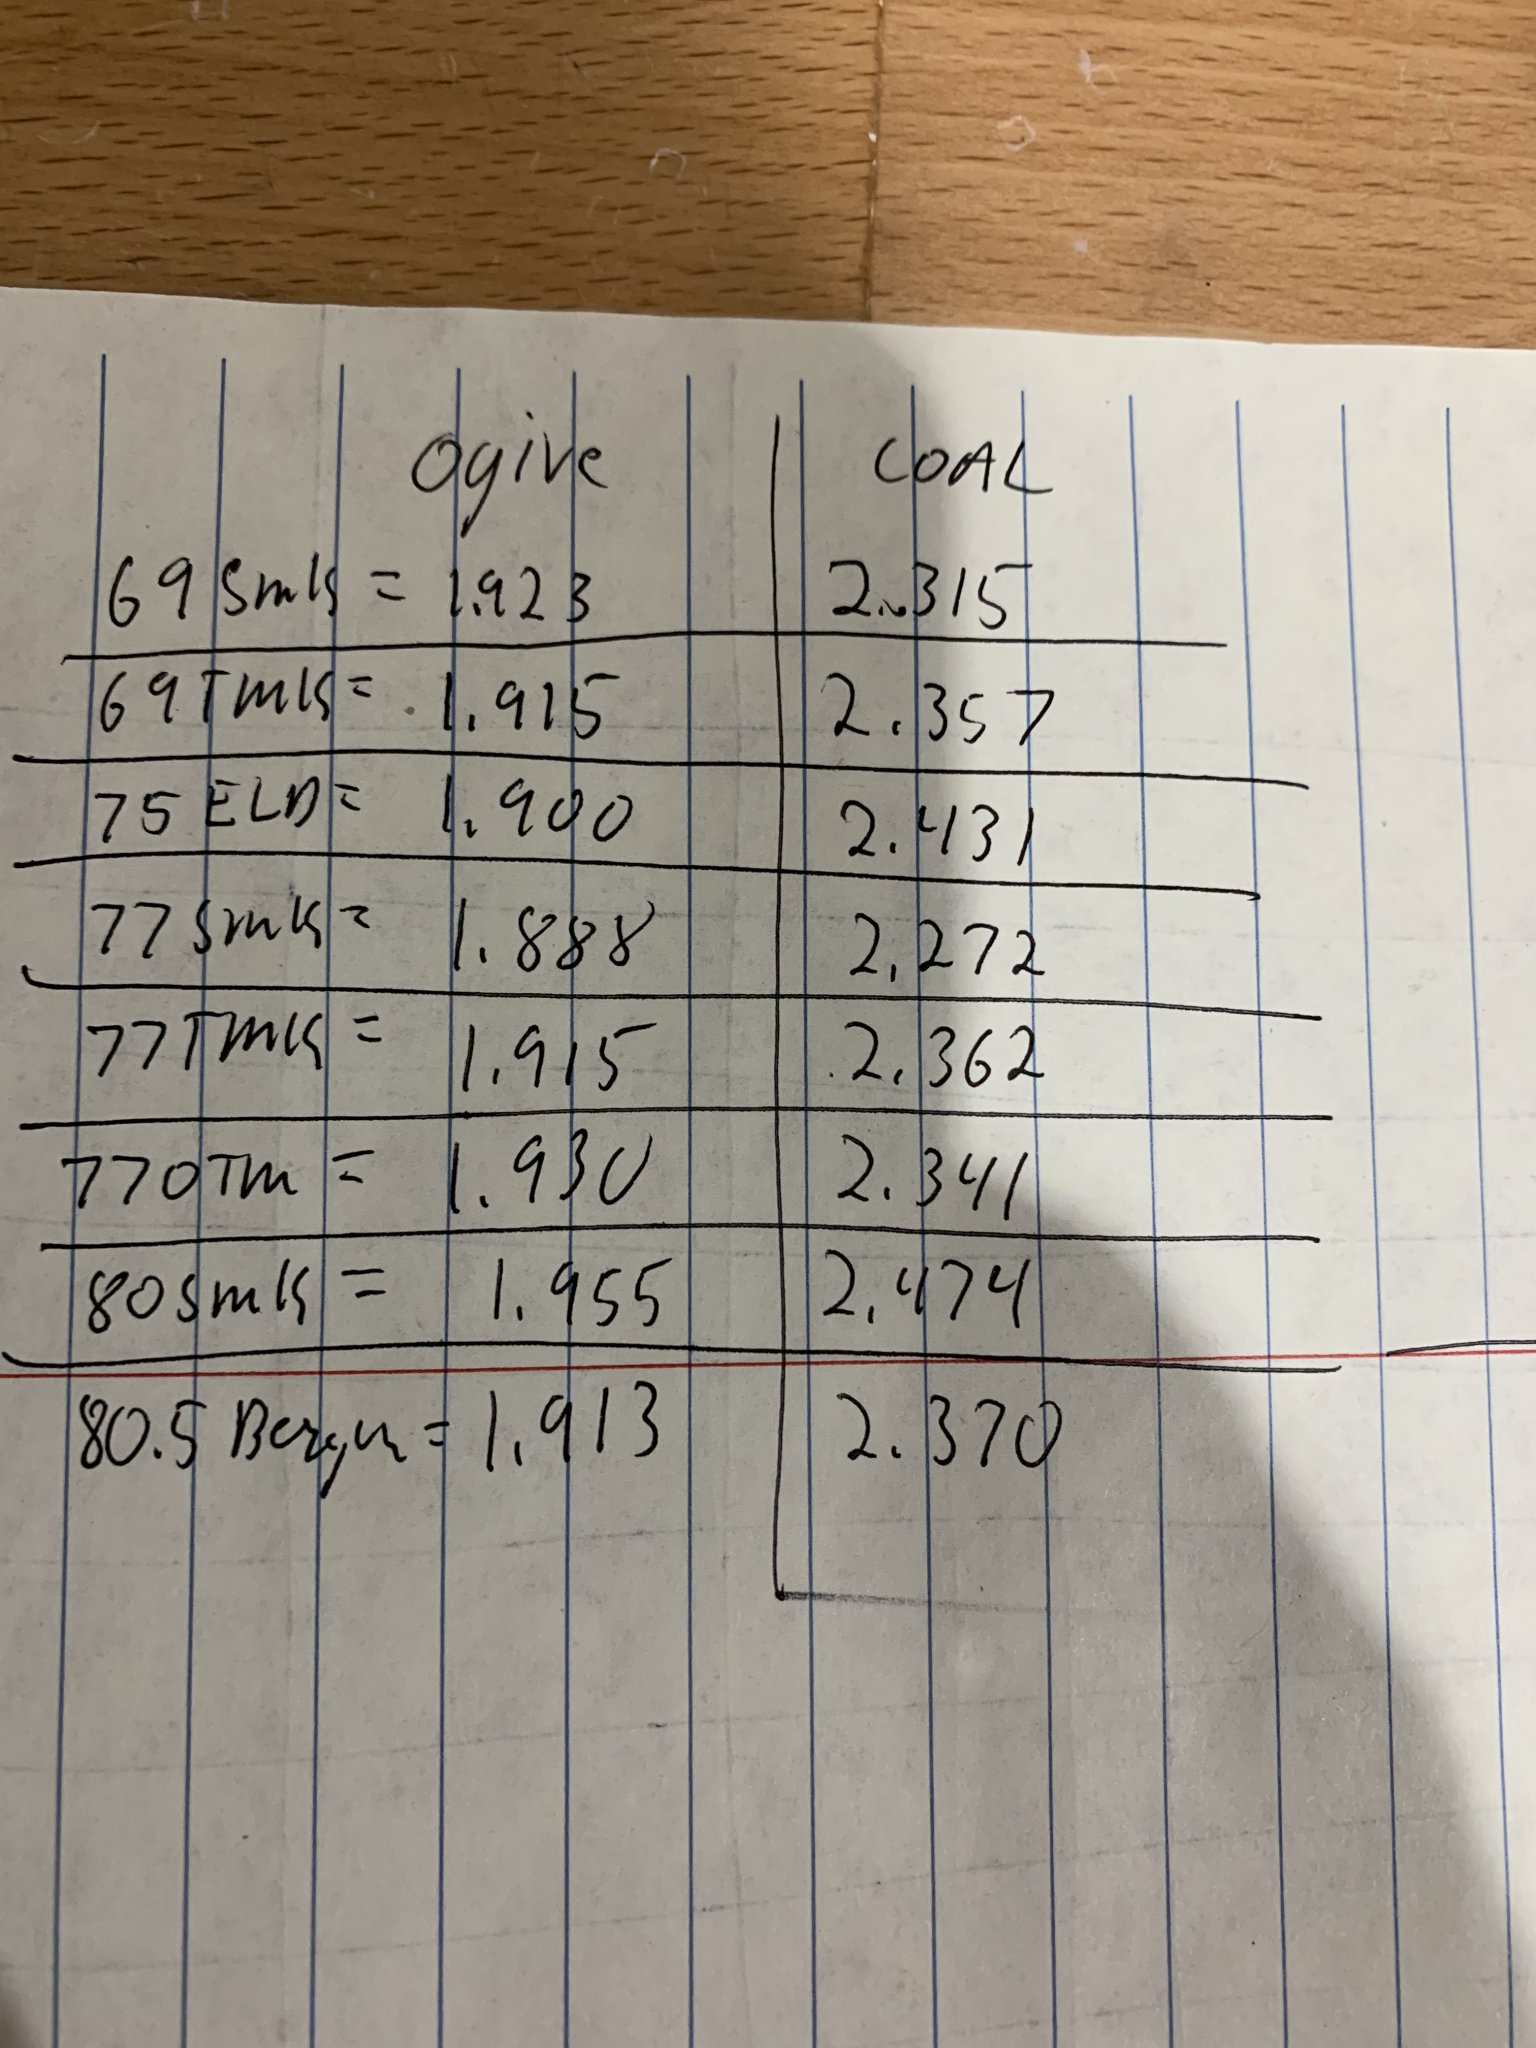 Ogive COAL
69 SMK = 1.923 2.315
69 TMK = 1.915 2.357
75 ELD = 1.900 2.431
77 SMK = 1.888 2.272
77 TMK = 1.915 2.362
77 OTM = 1.930 2.341
80 SMK = 1.955 2.474
80.5 Berger = 1.913 2.370